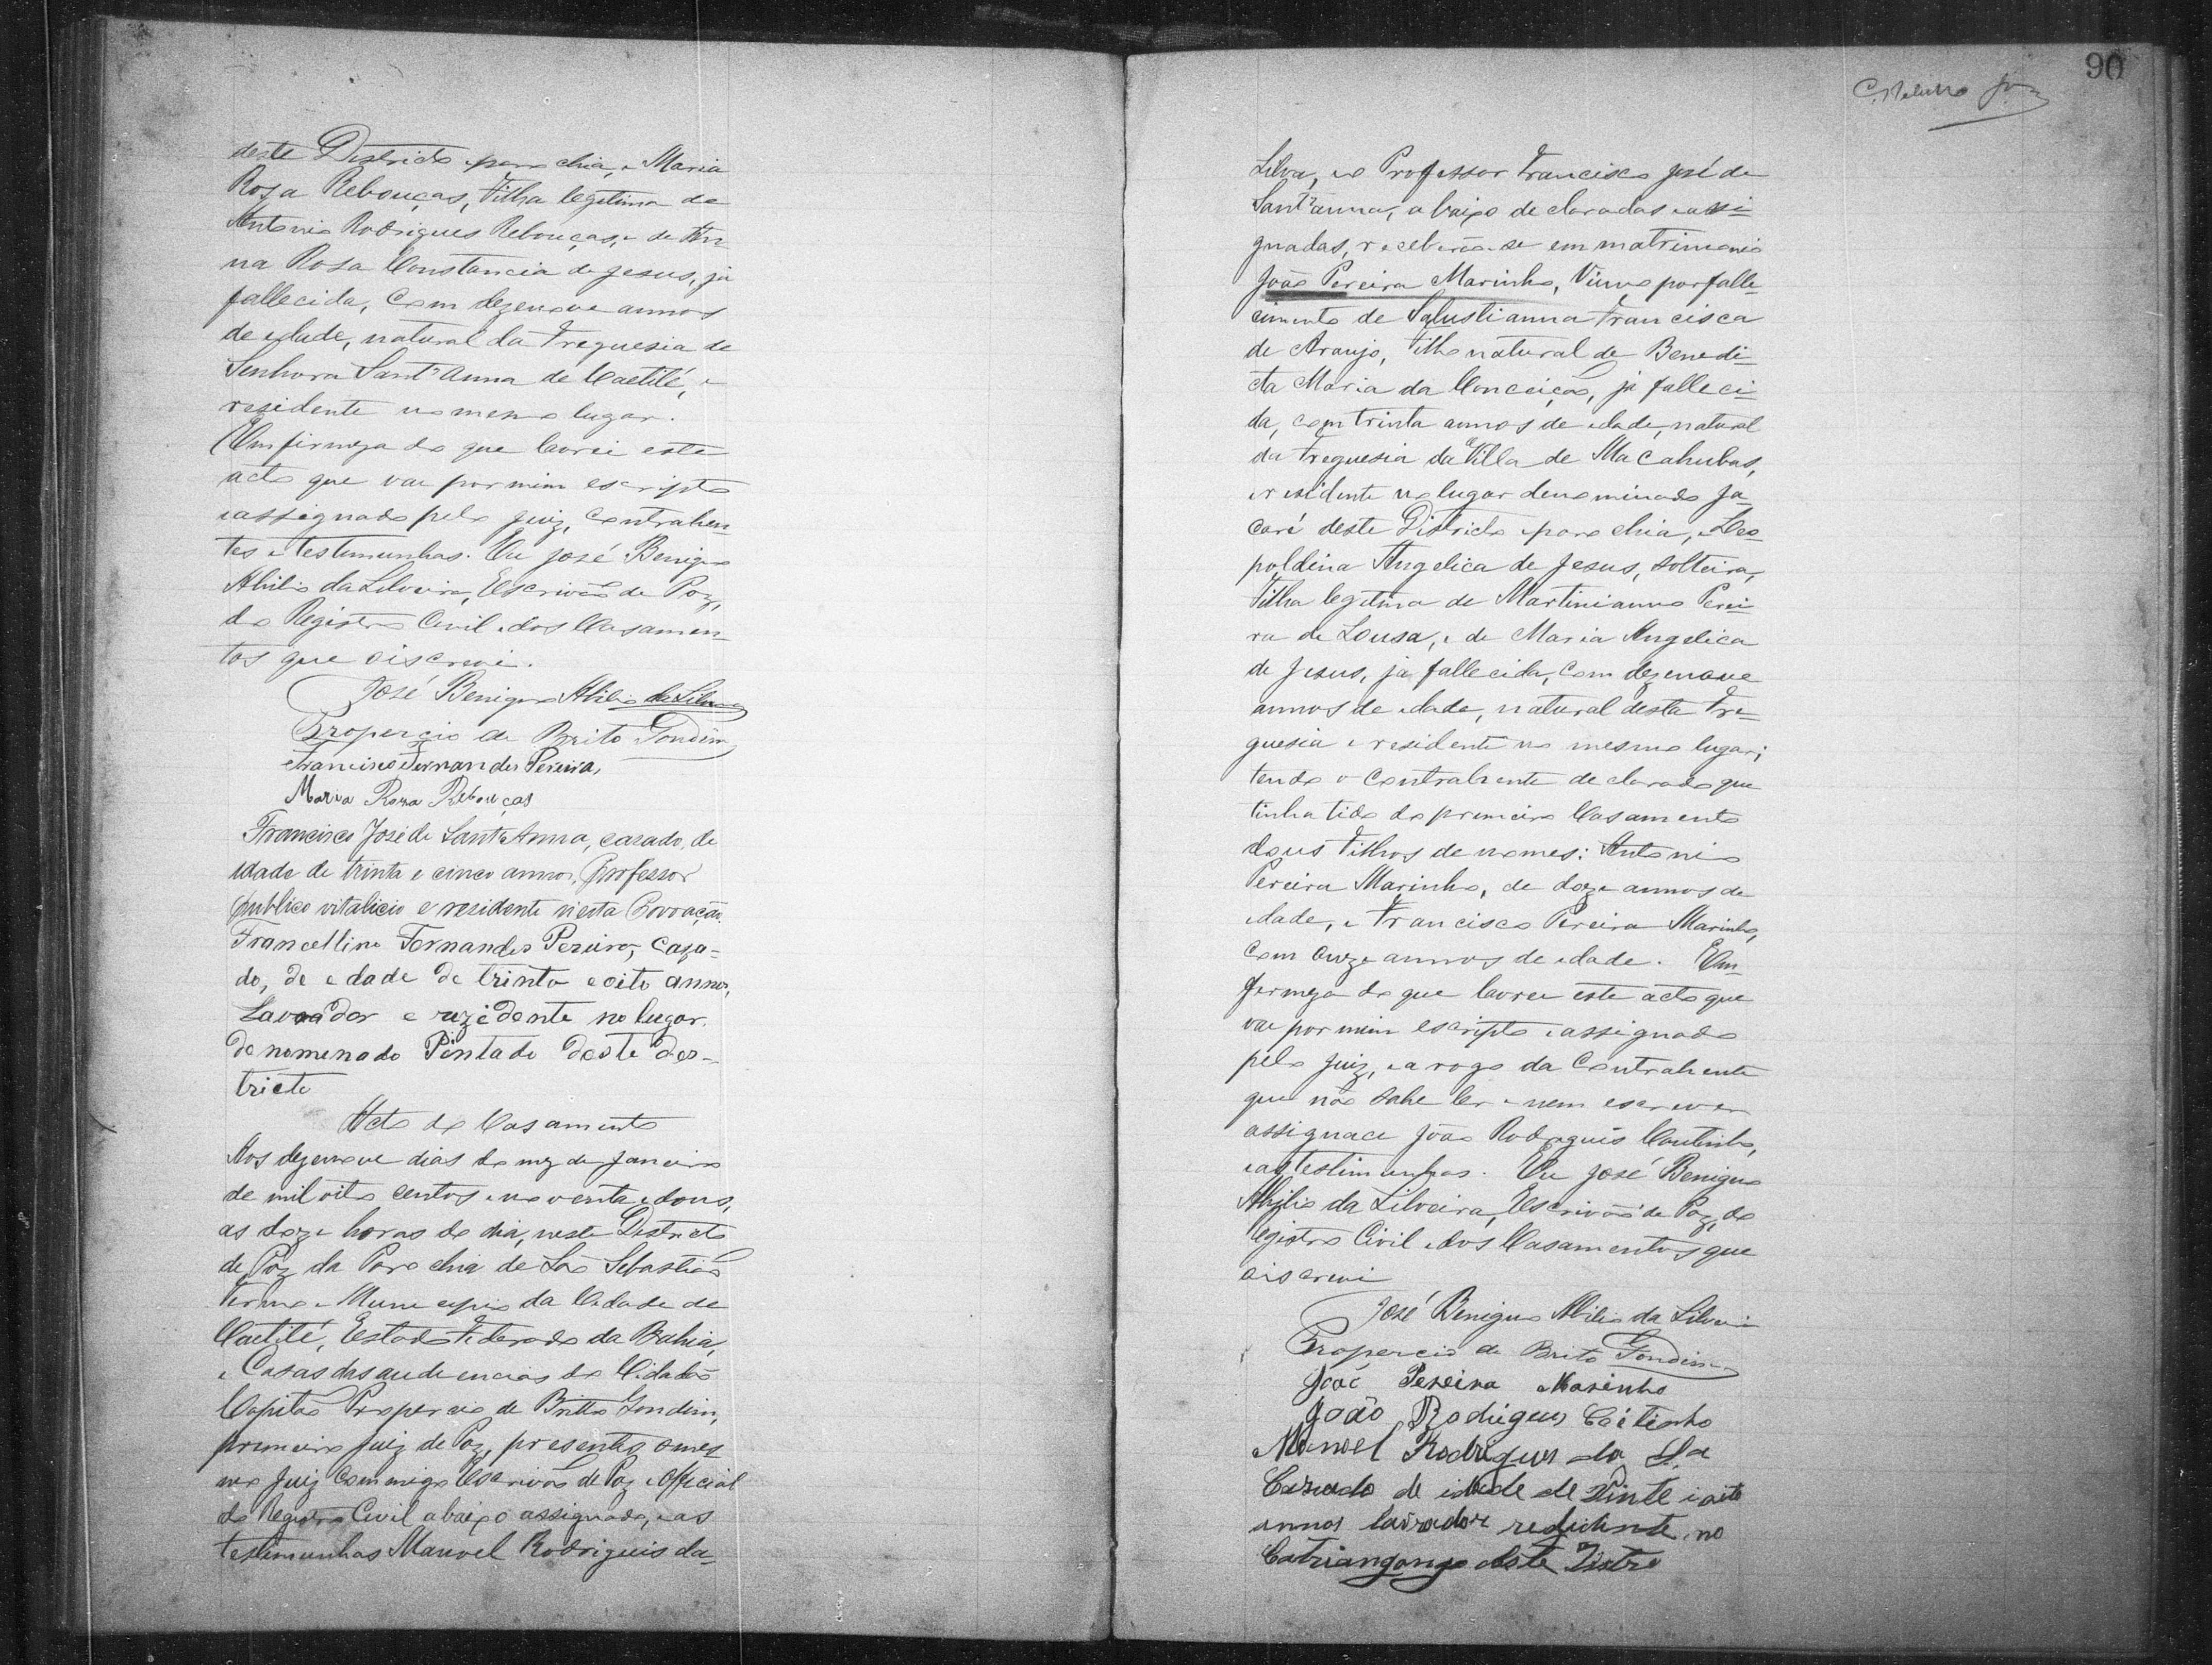 deste Districto e parochia, e Maria
Rosa Rebouças, Filha legitima de
Antonio Rodrigues Rebouças, e de An-
na Rosa Constancia de Jesus, já
fallecida, com dezenove annos
de edade, natural da Freguesia de
Senhora Sant'Anna de Caetité, e
residente no mesmo lugar.
Em firmeza do que lavrei este
acto que vae por mim escripto
e assignado pelo Juiz, Contrahen-
tes e testemunhas. Eu José Benigno
Abilio da Silveira, Escrivão de Paz,
do Registro Civil e dos Casamen-
tos que oiscrevi.
José Benigno Abilio da Silveira
Propercio de Brito Gondim
Francisco Fernandes Pereira,
Maria Roza Rebouças
Francisco José de Sant'Anna, cazado, de
idade de trinta e cinco annos, Professor
publico vitalicio e residente n'esta Povoação.
Francellino Fernandes Pereira, Caza-
do, de edade de trinta e oito annos,
Lavrador e rezidente no lugar
denomenado Pintado deste des-
tricto
Acto de Casamento
Aos dezenove dias do mez de Janeiro
de mil oito centos e noventa e dous,
as doze horas do dia, neste Districto
de Paz da Parochia de São Sebastião
Termo e Municipio da Cidade de
Caetité, Estado Federado da Bahia,
e Casas das audiencias do Cidadão
Capitão Propercio de Britto Gondim,
primeiro Juiz de Paz, presentes o mes-
mo Juiz commigo Escrivão de Paz e Official
do Registro Civil abaixo assignado, e as
testimunhas Manoel Rodrigues da-
90
Silva, e o Professor Francisco José de
Sant'anna, abaixo declaradas e assi-
gnadas, receberão-se em matrimonio
João Pereira Marinho, Viuvo por falle-
cimento de Salustianna Francisca
de Araujo, Filho natural de Benedi-
cta Maria da Conceição, já falleci-
da, com trinta annos de edade, natural
da Freguesia da Villa de Macahubas,
e residente no lugar denominado Ja-
caré deste Districto e parochia, e Leo-
poldina Angelica de Jesus, solteira,
Filha legitima de Martinianno Perei-
ra de Sousa, e de Maria Angelica
de Jesus, já fallecida, com dezenove
annos de edade, natural desta Fre-
guesia e residente no mesmo lugar;
tendo o Contrahente declarado que
tinha tido do primeiro Casamento
dous Filhos de nomes: Antonio
Pereira Marinho, de doze annos de
edade, e Francisco Pereira Marinho,
com onze annos de edade. Em
firmeza do que lavrei este acto que
vae por mim escripto e assignado
pelo Juiz, e a rogo da Contrahente
que não sabe ler e nem escrever
assignace João Rodrigues Coutinho,
e as testimunhas. Eu José Benigno
Abilio da Silveira, Escrivão de Paz, do
Registro Civil e dos Casamentos que
oiscrevi
José Benigno Abilio da Silveira
Propercio de Brito Gondim
João Pereira Marinho
João Rodrigues Coitinho
Manoel Rodrigues da Sa
Cazado de idade de Vinte i oito
annos lavrador residente no
deste Distro